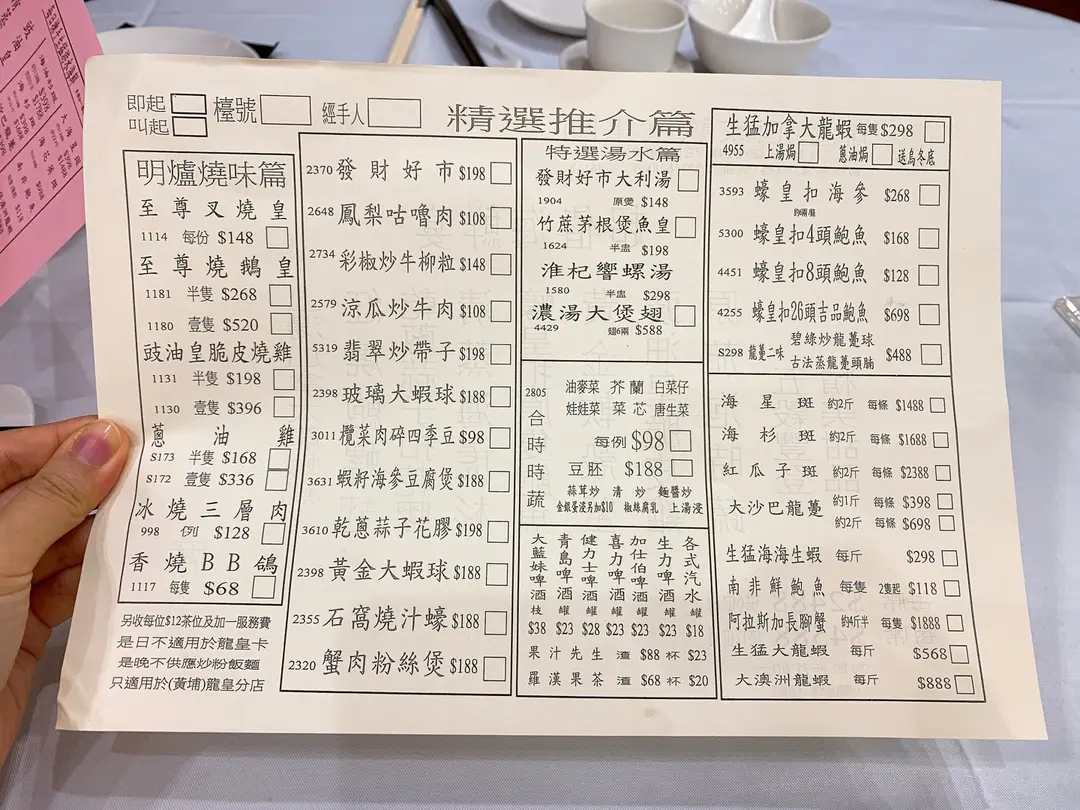 即起 檯號 經手人
叫起
精選推介篇
明爐燒味篇
至尊叉燒皇
1114 每份 $148
至尊燒鵝皇
1181 半隻 $268
1180 壹隻 $520
豉油皇脆皮燒雞
1131 半隻 $198
1130 壹隻 $396
蔥油雞
S173 半隻 $168
S172 壹隻 $336
冰燒三層肉
998 例 $128
香燒BB鴿
1117 每隻 $68
另收每位$12茶位及加一服務費
是日不適用於龍皇卡
是晚不供應炒粉飯麵
只適用於(黃埔)龍皇分店
2370 發財好市 $198
2648 鳳梨咕嚕肉 $108
2734 彩椒炒牛柳粒 $148
2579 涼瓜炒牛肉 $108
5319 翡翠炒帶子 $198
2398 玻璃大蝦球 $188
3011 欖菜肉碎四季豆 $98
3631 蝦籽海參豆腐煲 $188
3610 乾蔥蒜子花膠 $198
2398 黃金大蝦球 $188
2355 石窩燒汁蠔 $188
2320 蟹肉粉絲煲 $188
特選湯水篇
發財好市大利湯
1904 原煲 $148
竹蔗茅根煲魚皇
1624 半盅 $198
淮杞響螺湯
1580 半盅 $298
濃湯大煲翅
4429 翅6兩 $588
2805 合時時蔬
油麥菜 芥蘭 白菜仔
娃娃菜 菜芯 唐生菜
每例 $98
豆胚 $188
蒜茸炒 清炒 麵醬炒
金銀蛋浸另加$10 椒絲腐乳 上湯浸
大藍妹啤酒 枝 $38
青島啤酒 罐 $23
健力士啤酒 罐 $28
喜力啤酒 罐 $23
加仕伯啤酒 罐 $23
生力啤酒 罐 $23
各式汽水 罐 $18
果汁先生 渣 $88 杯 $23
羅漢果茶 渣 $68 杯 $20
生猛加拿大龍蝦 每隻 $298
4955 上湯焗 蔥油焗 送烏冬底
3593 蠔皇扣海參 $268
5300 蠔皇扣4頭鮑魚 $168
4451 蠔皇扣8頭鮑魚 $128
4255 蠔皇扣26頭吉品鮑魚 $698
S298 龍躉二味 碧綠炒龍躉球
古法蒸龍躉頭腩 $488
海星斑 約2斤 每條 $1488
海杉斑 約2斤 每條 $1688
紅瓜子斑 約2斤 每條 $2388
大沙巴龍躉 約1斤 每條 $398
約2斤 每條 $698
生猛海海生蝦 每斤 $298
南非鮮鮑魚 每隻 2隻起 $118
阿拉斯加長腳蟹 約4斤半 每隻 $1888
生猛大龍蝦 每斤 $568
大澳洲龍蝦 每斤 $888